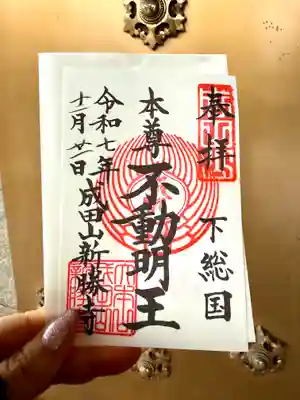 奉拝
下総国
本尊
不動明王
令和七年
十一月廿一日
成田山新勝寺